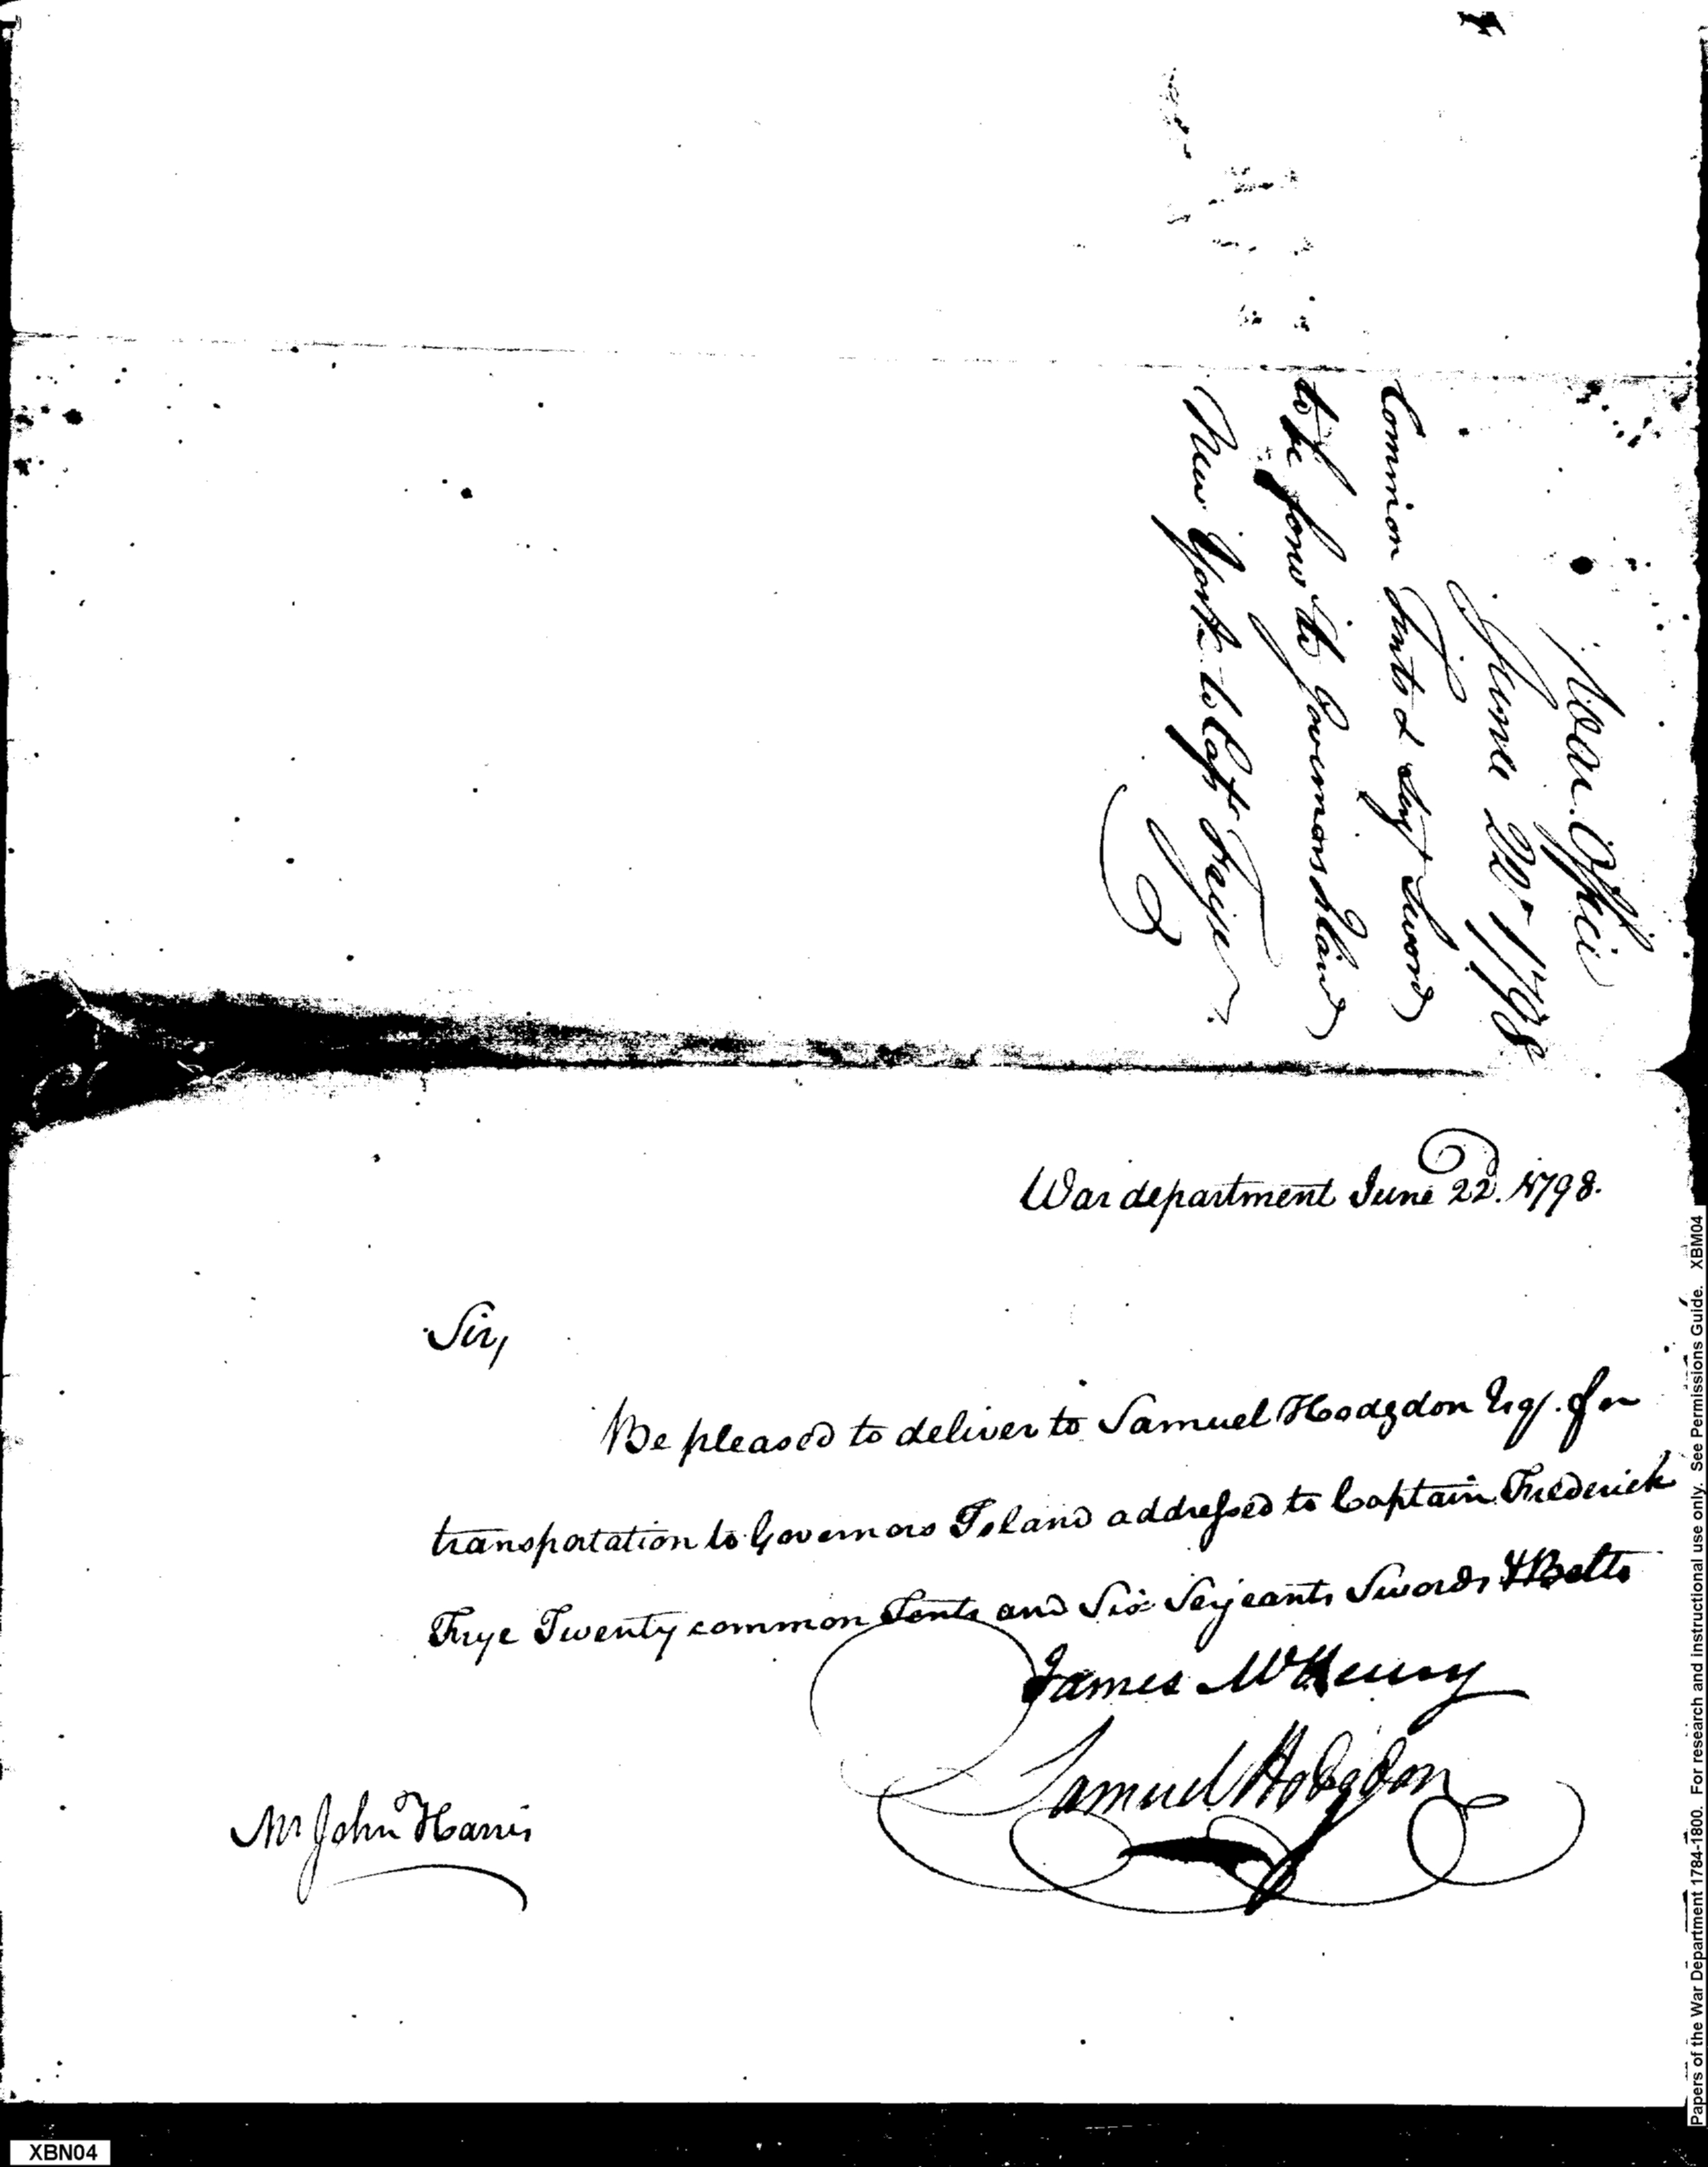 War Office
June 22d 1798
Common Tents & Serjt Swords
to be forwd to Governors Island
New York to Capt Frye
War department June 22d. 1798.
Sir,
Be pleased to deliver to Samuel Hodgdon Esqr. for
transportation to Governors Island addressed to Captain Frederick
Frye Twenty common Tents and Six Serjeants Swords & Belts
James McHenry
Samuel Hodgdon
Mr John Harris
Papers of the War Department 1784-1800. For research and instructional use only. See Permissions Guide. XBM04
XBN04